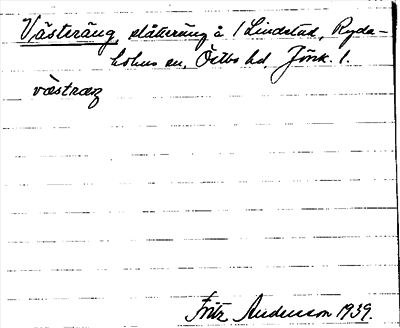 Västeräng, slåtteräng å 1 Lindstad, Ryda-
holms sn, Östbo hd, Jönk. l.
væstræŋ
Fritz Andersson 1939.